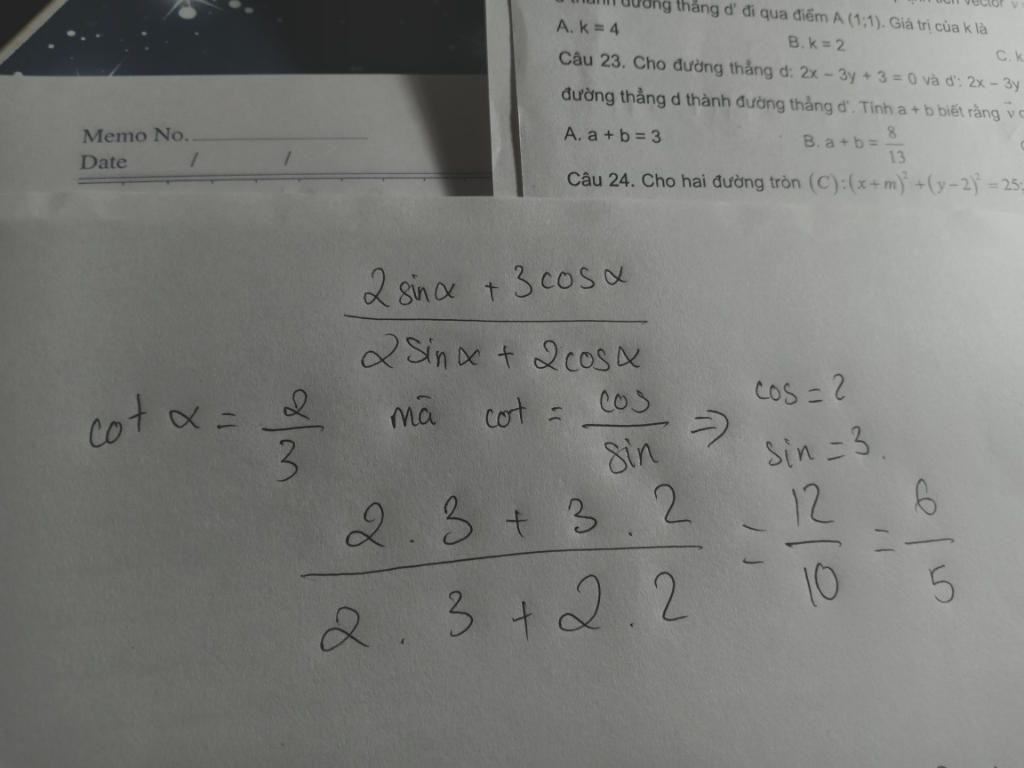 thành đường thẳng d' đi qua điểm A (1;1). Giá trị của k là
A. k = 4
B. k = 2
C. k
Câu 23. Cho đường thẳng d: 2x − 3y + 3 = 0 và d': 2x − 3y
đường thẳng d thành đường thẳng d'. Tính a + b biết rằng v
A. a + b = 3
B. a + b = 8/13
Câu 24. Cho hai đường tròn (C):(x+m)²+(y−2)²=25;
Memo No.
Date / /
2 sinα + 3 cosα / 2 sinα + 2 cosα
cot α = 2/3 mã cot = cos/sin ⇒ cos = 2
sin = 3.
2 . 3 + 3 . 2 / 2 . 3 + 2 . 2 = 12/10 = 6/5